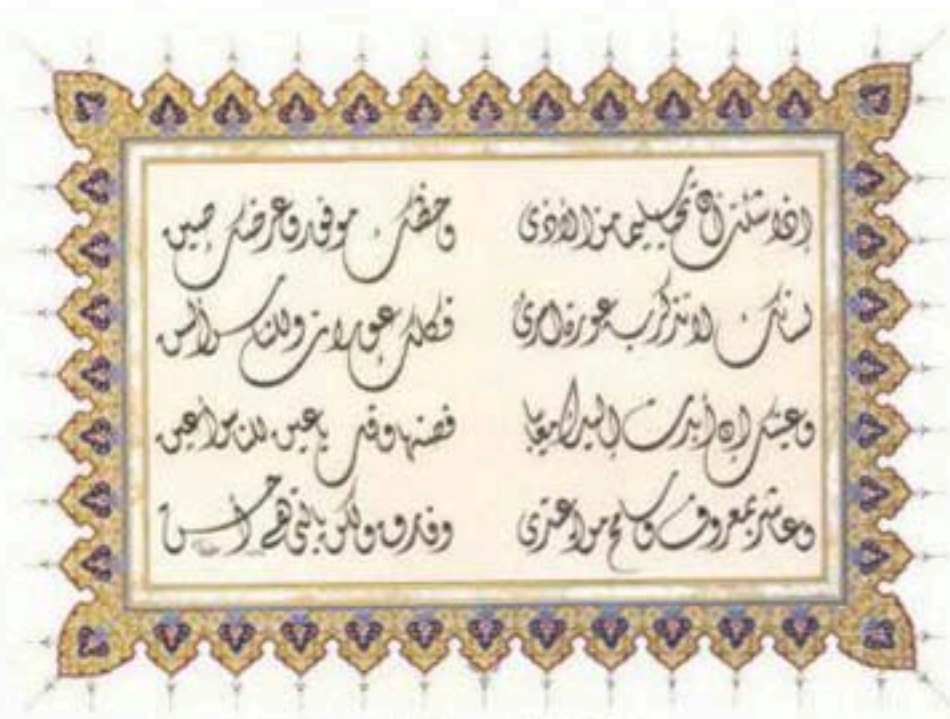 إذا شئت أن تحيا سليما من الأذى وحظك موفور وعرضك صين
لسانك لا تذكر به عورة امرئ فكلك عورات وللناس ألسن
وعينك إن أبدت إليك معايبا فصنها وقل يا عين للناس أعين
وعاشر بمعروف وسامح من اعتدى وفارق ولكن بالتي هي أحسن